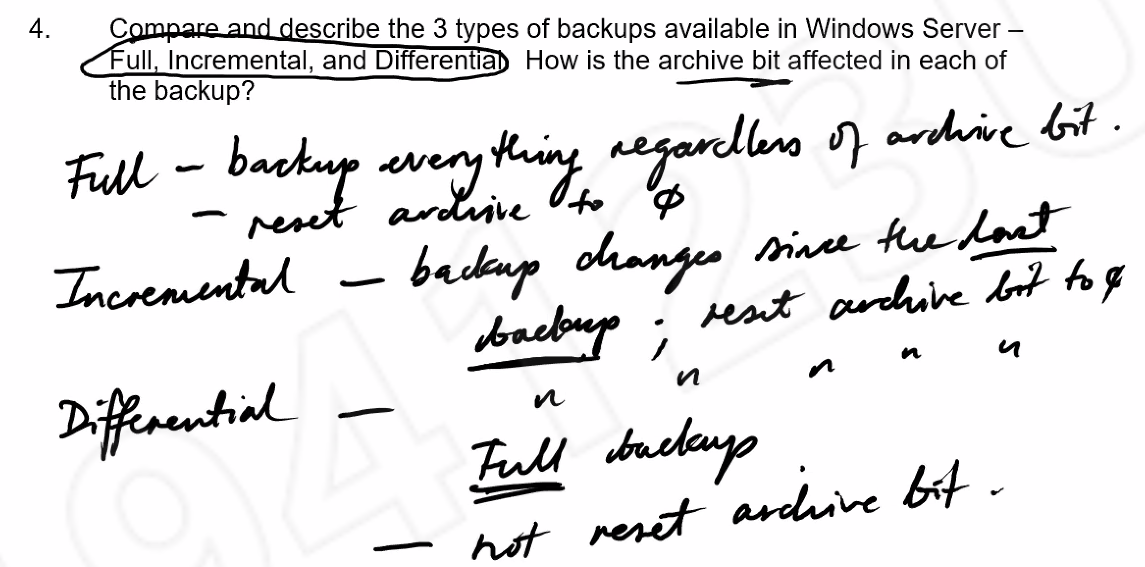 4. Compare and describe the 3 types of backups available in Windows Server –
Full, Incremental, and Differential. How is the archive bit affected in each of
the backup?
Full – backup everything regardless of archive bit.
– reset archive to 0
Incremental – backup changes since the last
backup ; reset archive bit to 0
Differential – " " " " "
Full backup
– not reset archive bit.